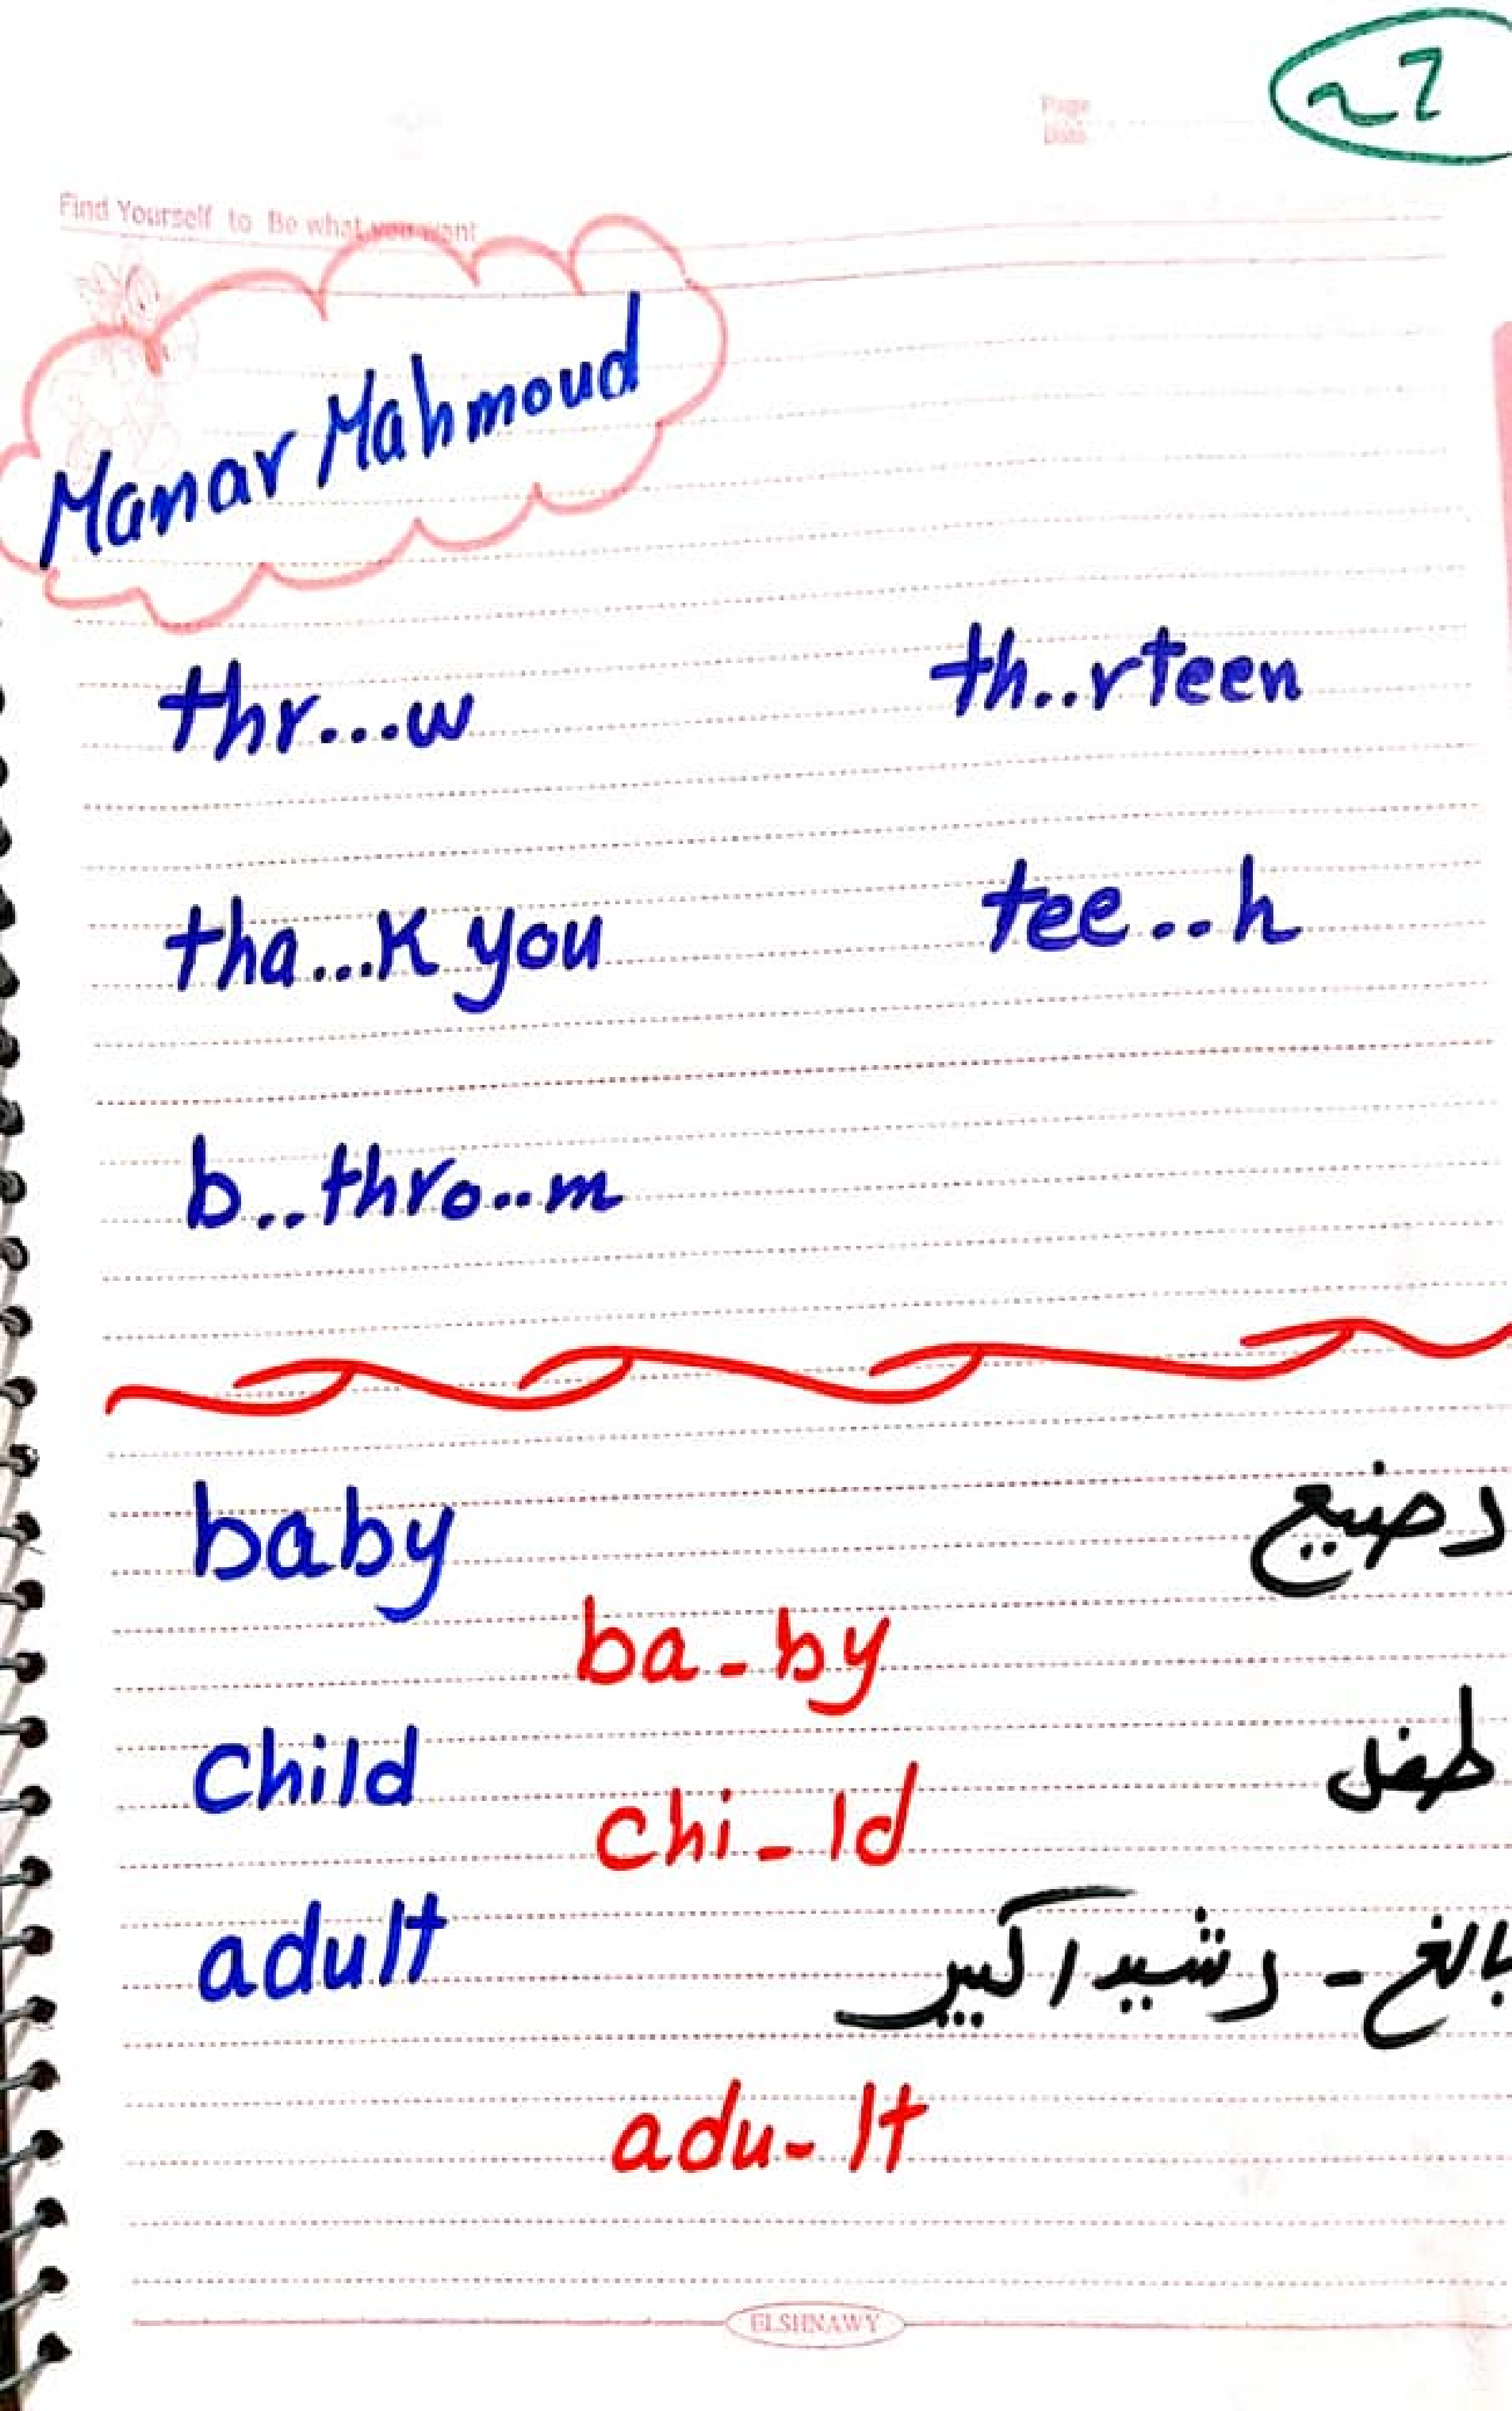 Page
Date
Find Yourself to Be what you want
Manar Mahmoud
thr...w th..rteen
tha...k you tee..h
b..thro..m
baby رضيع
ba-by
child طفل
chi-ld
adult بالغ - رشيد / كبير
adu-lt
ELSHNAWY